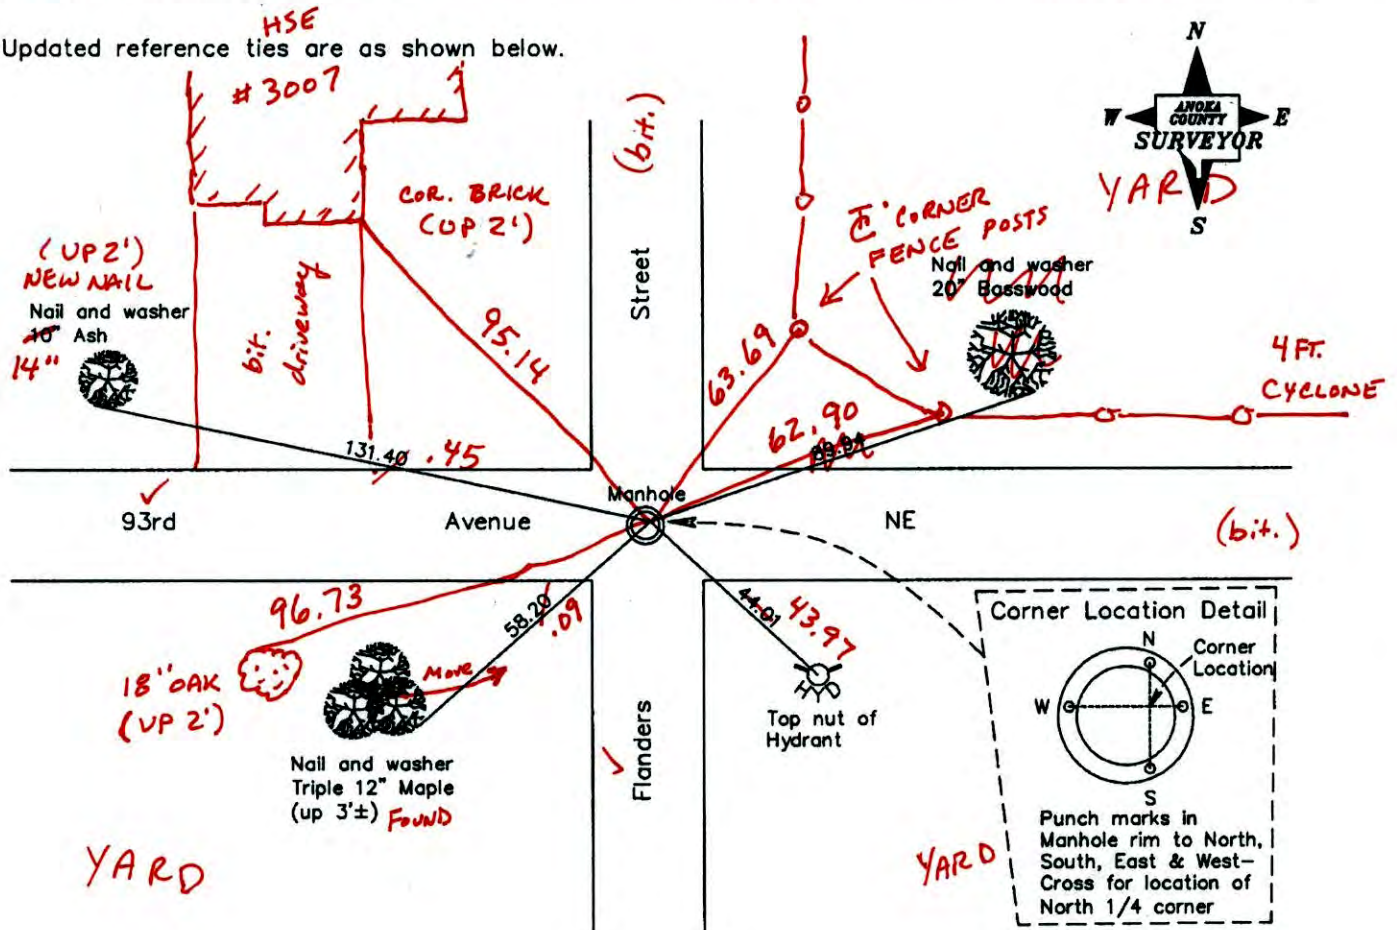 HSE
Updated reference ties are as shown below.
# 3007
(bit.)
N
W
ANOKA
COUNTY
E
SURVEYOR
S
YARD
COR. BRICK
(UP 2')
CORNER
FENCE POSTS
(UP 2')
NEW NAIL
Nail and washer
10" Ash
14"
bit.
driveway
95.14
Street
63.69
Nail and washer
20" Basswood
4 FT.
CYCLONE
62.90
131.40 .45
Manhole
93rd
Avenue
NE
(bit.)
96.73
58.20
.09
44.01
43.97
18" OAK
(UP 2')
Move
HYD
Top nut of
Hydrant
Nail and washer
Triple 12" Maple
(up 3'±) FOUND
Flanders
YARD
YARD
Corner Location Detail
N
Corner
Location
W
E
S
Punch marks in
Manhole rim to North,
South, East & West-
Cross for location of
North 1/4 corner